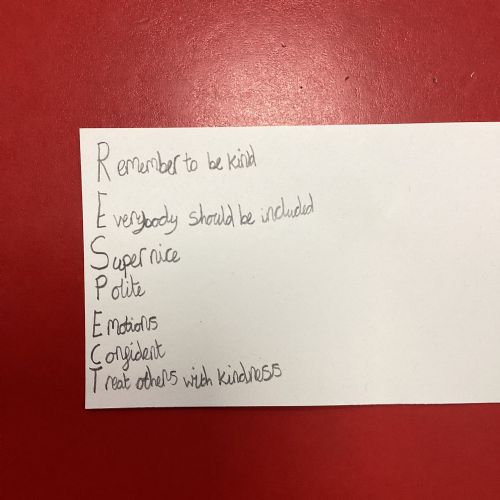 Remember to be kind
Everybody should be included
Super nice
Polite
Emotions
Congident
Treat others with kindness